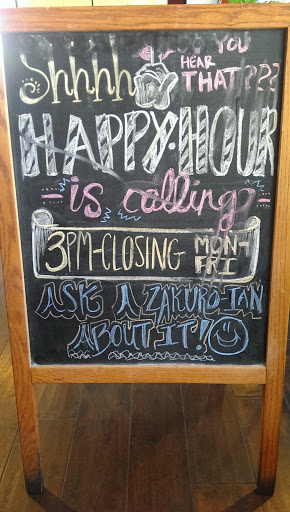 Shhhh DO YOU HEAR THAT???
HAPPY·HOUR
is calling
3PM-CLOSING MON-FRI
ASK A ZAKURO-IAN
ABOUT IT!